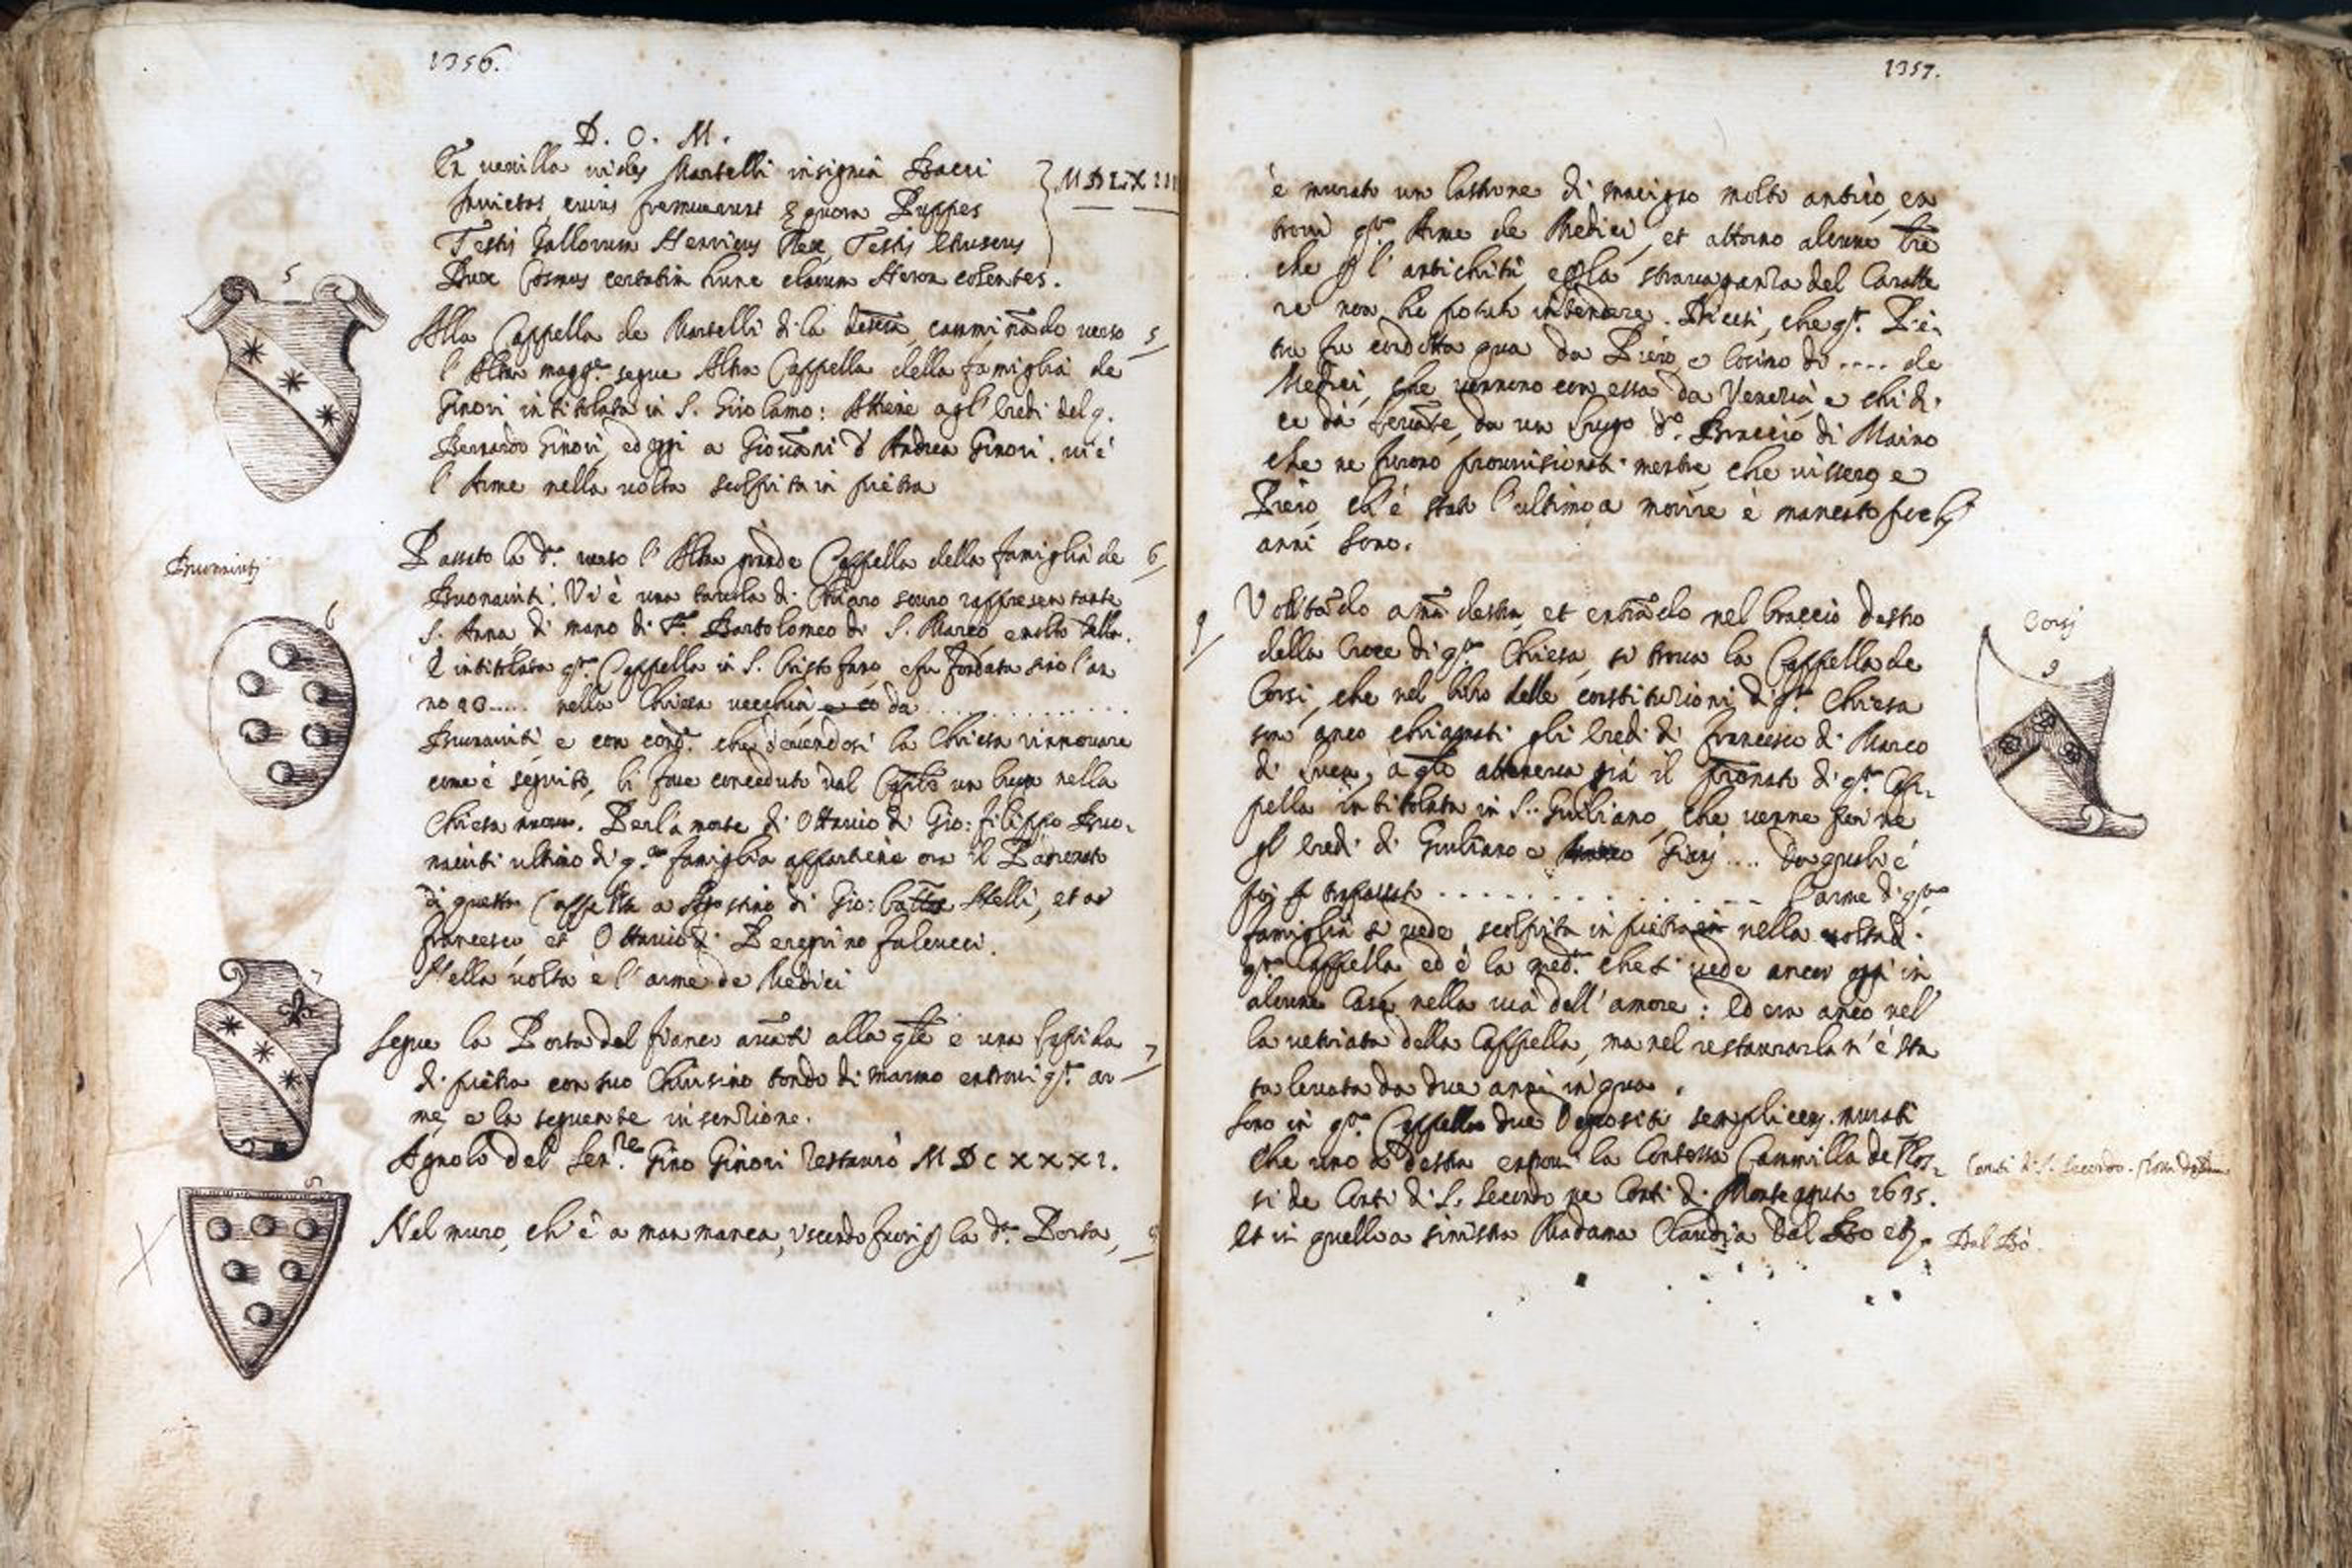 1356.
D. O. M.
En vexilla vides Martelli insignia Bacci
Invictas cuius fremuerunt equora Puppes
Testis Gallorum Henricus Rex, Testis Etruscus
Dux Cosmus certatim hunc clarum Heroa colentes.
MDLXIII
5
Alla Cappella de Martelli di la destra, camminãdo verso
l'Altar magg.e segue Altra Cappella della famiglia de
Ginori intitolata in S. Girolamo: Attiene agl'Eredi del q.
Bernardo Ginori, ed oggi a Giovãni d'Andrea Ginori. vi è
l'Arme nella volta scolpita in pietra
5
Buonavinti
Passato la d.a verso l'Altar grãde Cappella della famiglia de
Buonaviti. Vi è una tavola di Chiaro scuro rappresentante
S. Anna di mano di F. Bartolomeo di S. Marco molto bella.
È intitolata q.ta Cappella in S. Cristofano, e fu fondata sino l'an
no 13..... nella Chiesa vecchia da ..............
Buonaviti e con cond.e che devendosi la Chiesa rinnovare
come è seguito, li foue conceduto dal Caplo un luogo nella
Chiesa nuova. Per la morte di Ottavio di Gio: filippo Buo-
naviti ultimo di q.a famiglia appartiene ora il Padronato
di questa Cappella a Agostino di Gio: Batta Stelli, et a
francesco et Ottavio di Peregrino falcucci.
Nella volta è l'arme de Medici
6
6
7
Segue la Porta del fianco avãti alla qle è una lapida
di pietra con suo Chiusino tondo di marmo entrovi q.ta ar
me, e la seguente inscrizione.
Agnolo del Sen.re Gino Ginori restaurò MDCXXXI.
7
8
Nel muro, ch'è a man manca, uscendo fuori p la d.a Porta,
8
1357.
è murato un lastrone di macigno molto antico, en
trovi q.ta Arme de Medici, et attorno alcune lre
che p l'antichità, e p la stravaganza del Caratte
re non hò potuto intendere. Dicesi, che q.ta Pie-
tra fu condotta qua da Piero, e Cosimo di .... de
Medici, che vennono con essa da Venezia e chi di-
ce da da un luogo d.o Braccio di Maino
che ne furono provvisionati mentre, che vissero e
Piero ch'è stato l'ultimo a morire è mancato pochi
anni sono.
9
Voltãdo a mã destra, et entrãdo nel braccio destro
della Croce di q.ta Chiesa, si trova la Cappella de
Corsi, che nel libro delle constituzioni di q.ta Chiesa
son anco chiamati gli Eredi di francesco di Marco
di Luca, a qli atteneva già il pronato di q.ta Cap-
pella intitolata in S. Giuliano, che venne poi ne
gl'Eredi di Giuliano e Gini .... Da questi è
poi trapassato ............... L'arme di q.ta
famiglia si vede scolpita in pietra nella volta di
q.ta Cappella, ed è la med.a che si vede ancor oggi in
alcune Case nella via dell'amore: Ed era anco nel
la vetriata della Cappella, ma nel restaurarla n'è sta
ta levata da due anni in qua.
Sono in q.ta Cappella due Depositi semplicem. murati
che uno a destra entrovi la Contessa Cammilla de Ros-
si de Conti di S. Secondo ne Conti di Monte aguto 1635.
Et in quello a sinistra Madama Claudia Dal Bo
Corsj
9
Conti di S. Secondo.
Dal Bò.